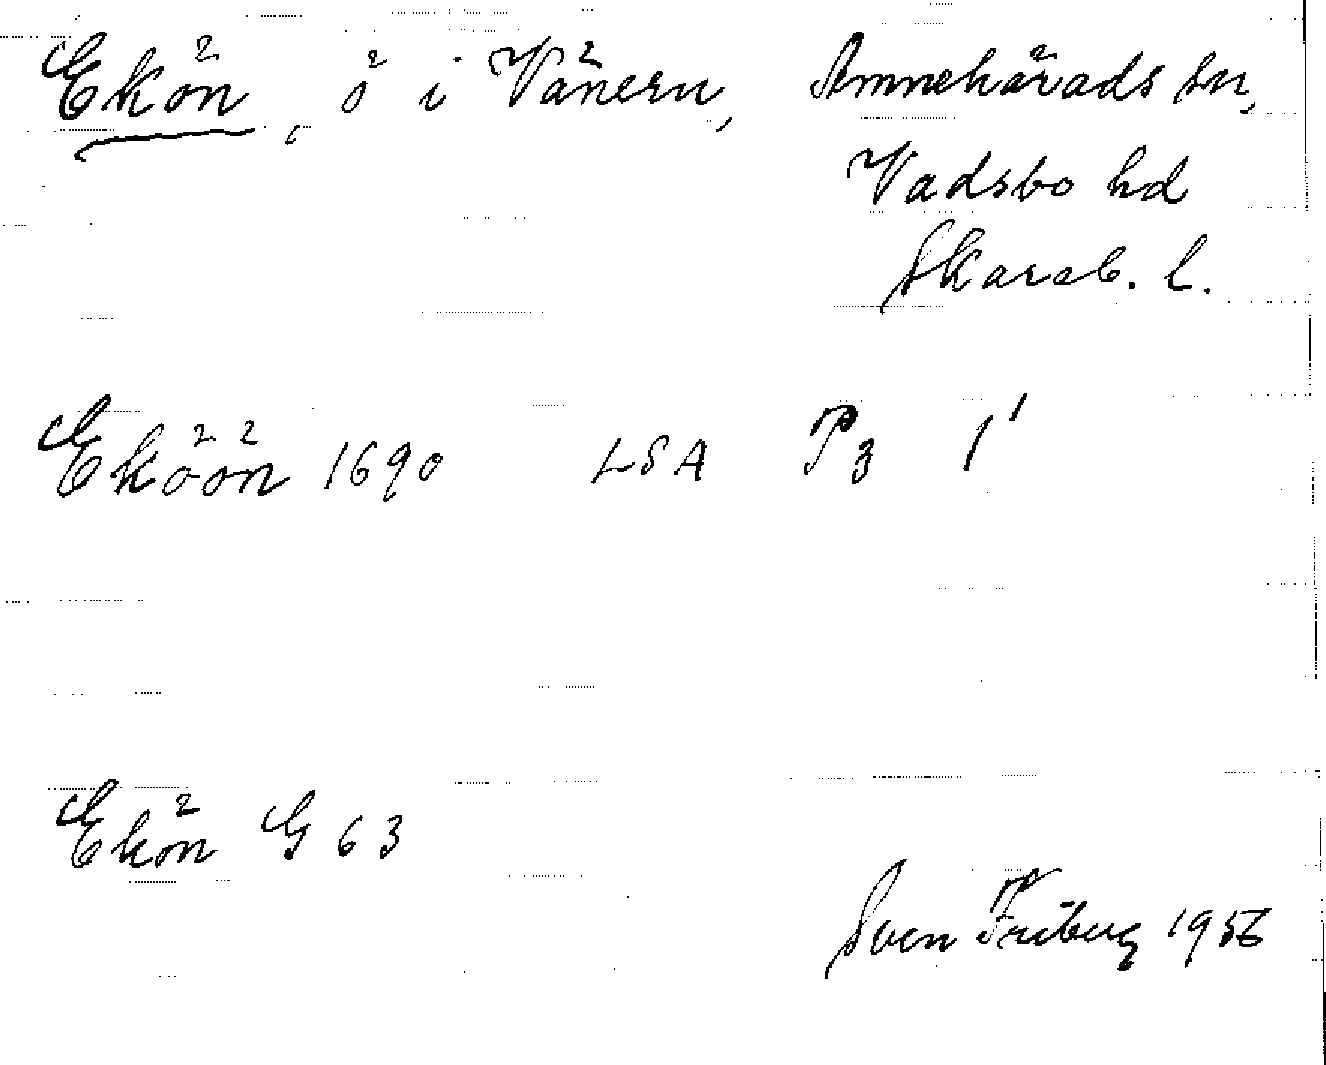 Ekön, ö i Vänern, Amnehärads sn,
Vadsbo hd
Skarab. l.
Eköön 1690 LSA P3 1'
Ekön G 63
Sven Friberg 1956